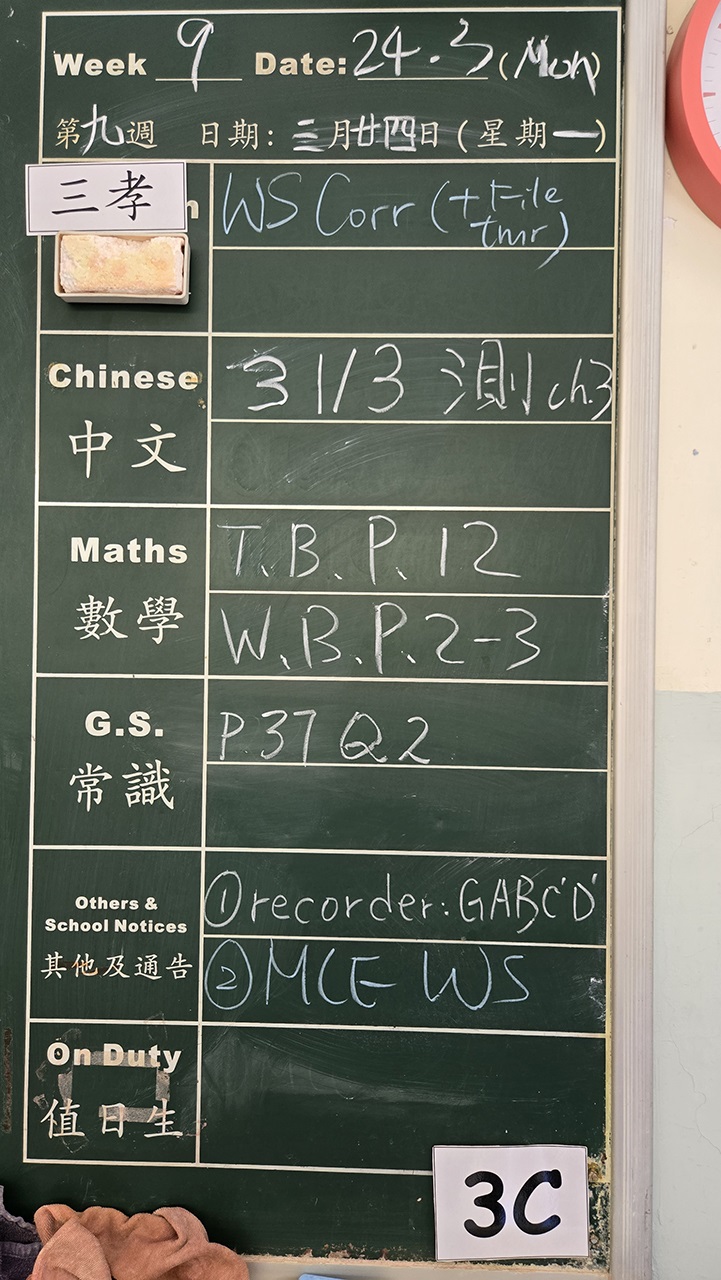 Week 9 Date: 24.3 (Mon)
第九週 日期: 三月廿四日 (星期一)
三孝
WS Corr (+ File
tmr)
Chinese
中文
31/3 測 ch.3
Maths
數學
T.B.P.12
W.B.P.2-3
G.S.
常識
P37 Q2
Others &
School Notices
其他及通告
①recorder: GABC'D'
②MCE WS
On Duty
值日生
3C